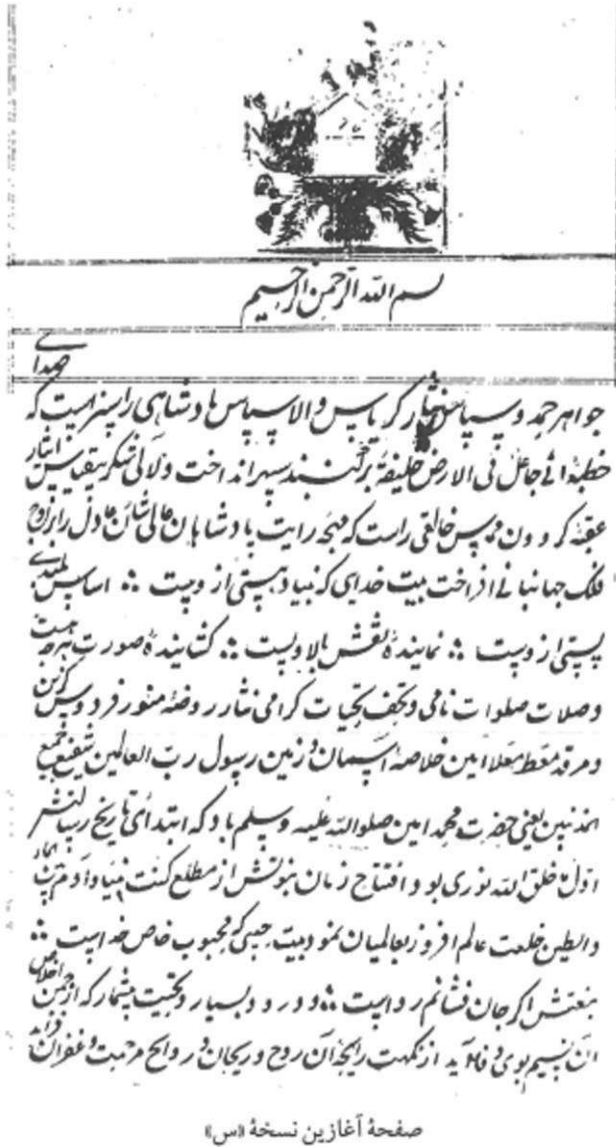 بسم الله الرحمن الرحیم
جواهر حمد و سپاس نثار کریاس والا سپاس پادشاهی را سزاست که صدای
خطبهٔ انی جاعل فی الارض خلیفة بر گنبد سپهر انداخت و لآلی شکر بیقیاس ایثار
عتبهٔ گردون خالقی راست که مهجه رایت پادشاهان عالی شان عادل را بر اوج
فلک جهانبانی افراخت بیت خدای که بنیاد هستی ازوست ؞ اساس بلندی
پستی ازوست ؞ نمایندهٔ نقش بالا و پست ؞ گشایندهٔ صورت هرچه هست
وصلات صلوات نامی و تحف تحیات گرامی نثار روضهٔ منور فردوس
و مرقد معطر معلا امین خلاصهٔ آسمان و زمین رسول رب العالمین شفیع جمیع
المذنبین یعنی حضرت محمد امین صلوالله علیه وسلم باد که ابتدای تاریخ رسالتش
اول ما خلق الله نوری بود و افتتاح زمان نبوتش از مطلع کنت نبیا و آدم بین الماء
والطین خلعت عالم افروز بعالمیان نمود بیت حبیبی که محبوب خاص خداست ؞
بنعتش اگر جان فشانم رواست ؞ و درود بسیار و تحیت بیشمار که از چمن اخلاص
آن نسیم بوی وفا آید از نکهت رایحهٔ آن روح و ریحان و روایح مرحمت و غفران فزاید
صفحهٔ آغازین نسخهٔ «س»